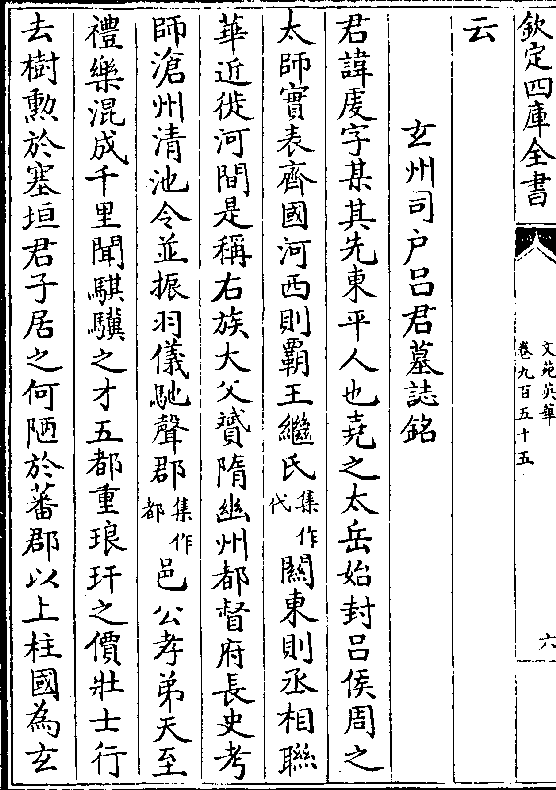 欽定四庫全書
文苑英華
卷九百五十五
六
云
玄州司户吕君墓誌銘
君諱䖍字某其先東平人也堯之太岳始封吕侯周之
太師實表齊國河西則覇王繼氏集作代闗東則丞相聯
華近徙河間是稱右族大父贇隋幽州都督府長史考
師滄州清池令並振羽儀馳聲郡集作都邑公孝弟天至
禮樂混成千里聞騏驥之才五都重琅玕之價壯士行
去樹勲於塞垣君子居之何陋於蕃郡以上柱國為玄